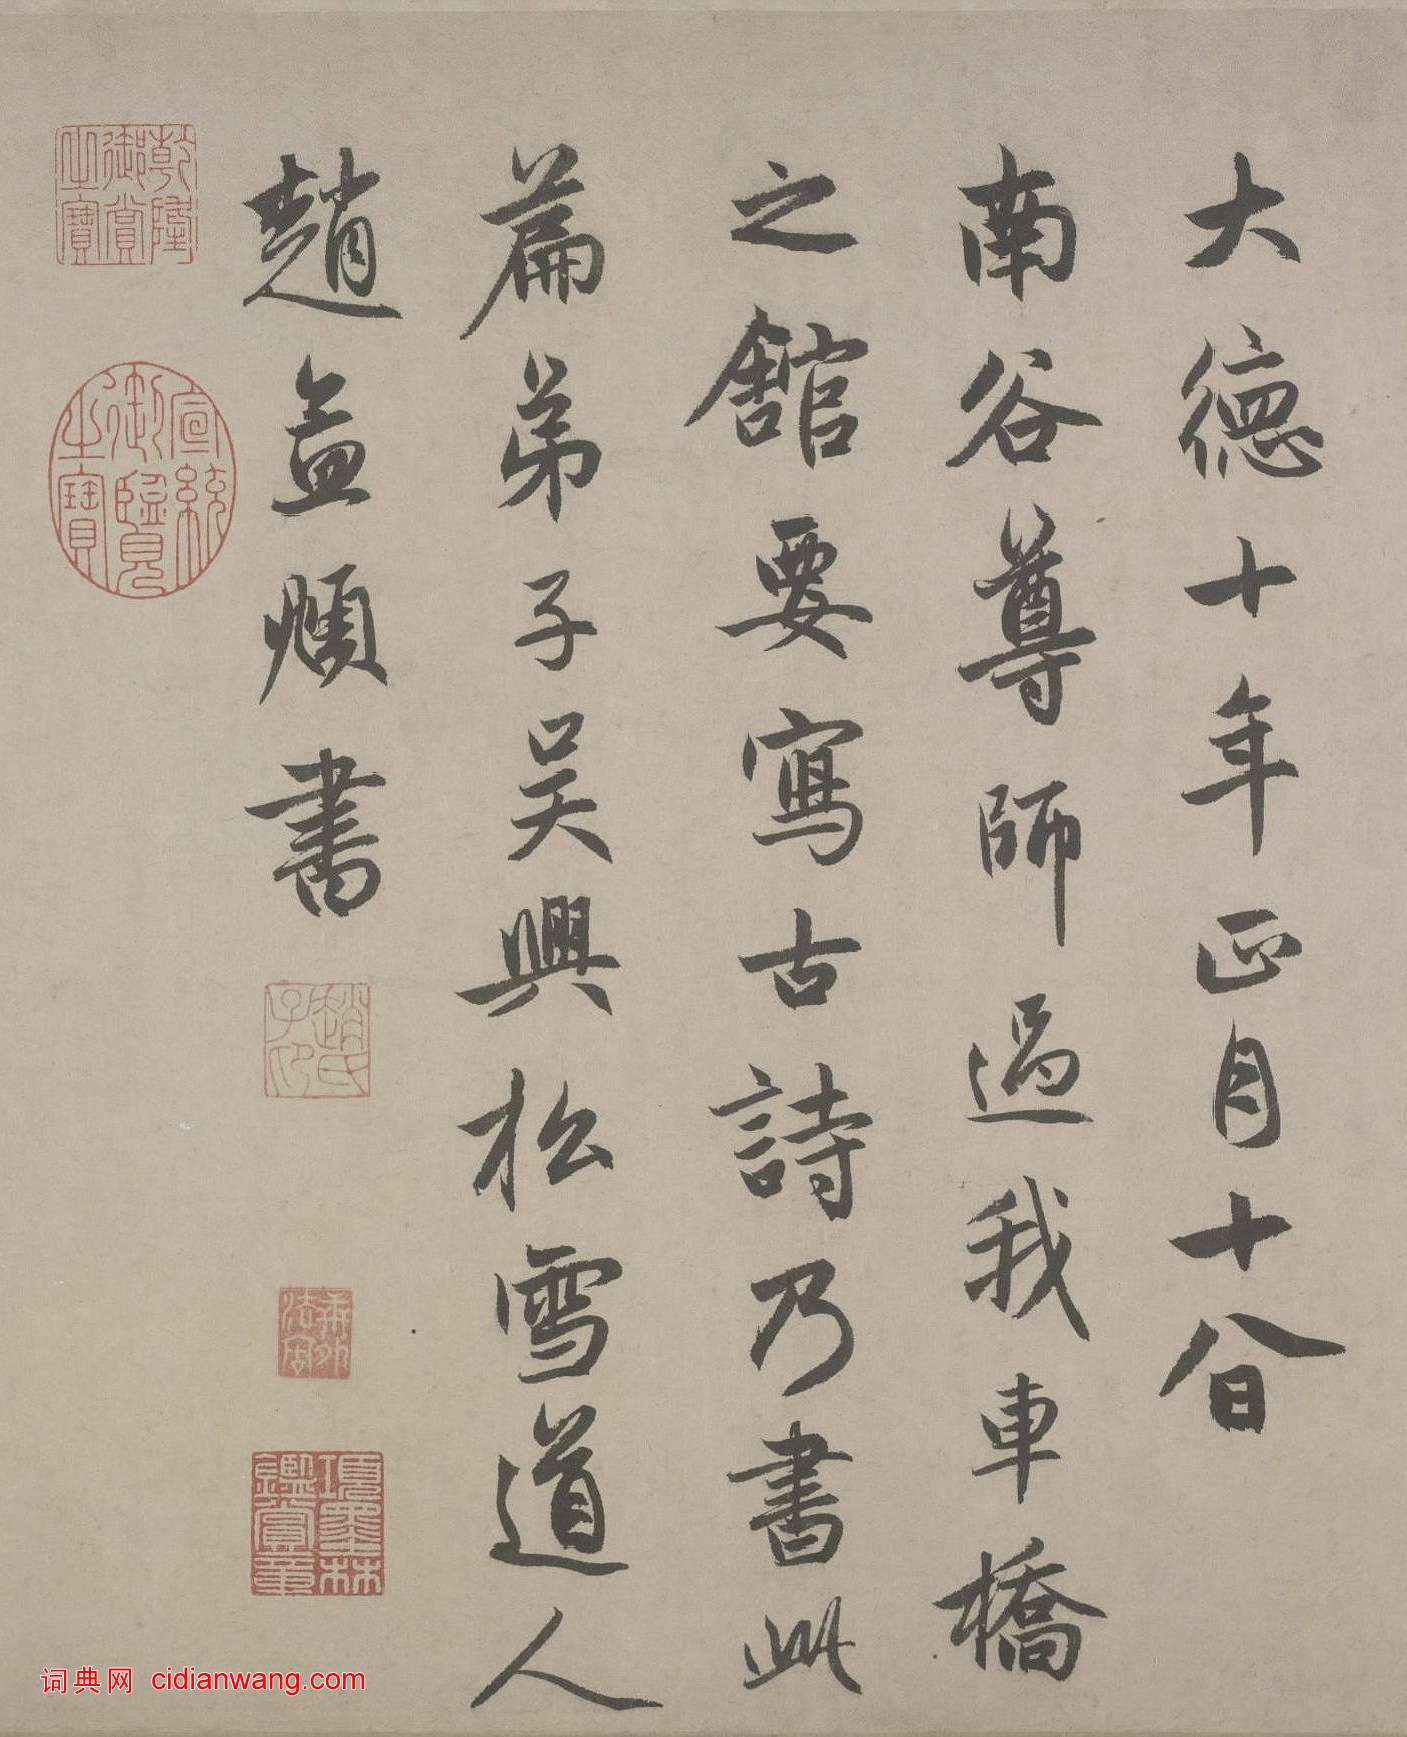 大德十年正月十八日
南谷尊師過我車橋
之舘要寫古詩乃書此
篇弟子吳興松雪道人
趙孟頫書
趙氏子昂
項墨林鑑賞章
乾隆御賞之寶
宣統御覽之寶
词典网 cidianwang.com